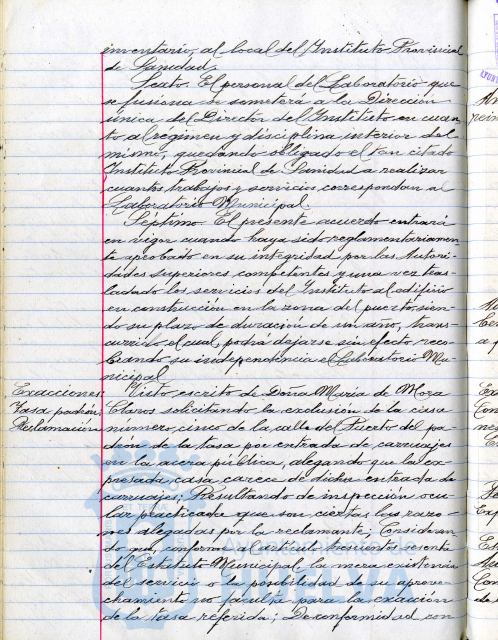 inventario, al local del Instituto Provincial
de Sanidad.
Sexto. El personal del Laboratorio que
se fusiona se someterá a la Dirección
única del Director del Instituto en cuan-
to al régimen y disciplina interior del
mismo, quedando obligado el tan citado
Instituto Provincial de Sanidad a realizar
cuantos trabajos y servicios correspondan al
Laboratorio Municipal.
Séptimo. El presente acuerdo entrará
en vigor cuando haya sido reglamentariamen-
te aprobado en su integridad por las Autori-
dades superiores competentes y una vez tras-
ladado los servicios del Instituto al edificio
en construcción en la zona del puerto, sien-
do su plazo de duración de un año, trans-
currido el cual, podrá dejarse sin efecto reco-
brando su independencia el Laboratorio Mu-
nicipal
Exacciones
Tasa padrón.
Reclamación
Visto escrito de Doña María de Mora
Claros solicitando la exclusión de la casa
número cinco de la calle del Puerto del pa-
drón de la tasa por entrada de carruajes
en la acera pública, alegando que la ex-
presada casa carece de dicha entrada de
carruajes; Resultando de inspección ocu-
lar practicada que son ciertas las razo-
nes alegadas por la reclamante; Consideran-
do que, conforme al artículo trescientos sesenta
del Estatuto Municipal, la mera existencia
del servicio o la posibilidad de su aprove-
chamiento no faculta para la exacción
de la tasa referida; De conformidad con